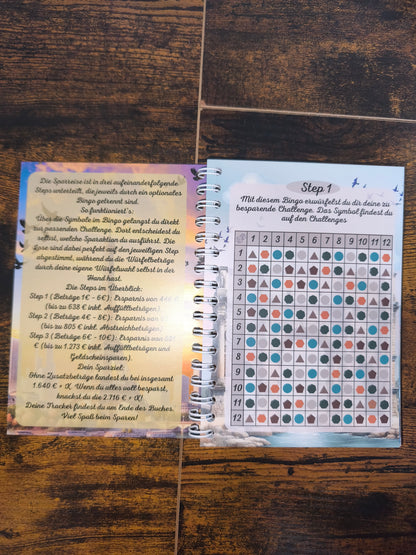 Die Sparreise ist in drei aufeinanderfolgende
Steps unterteilt, die jeweils durch ein optionales
Bingo getrennt sind.
So funktioniert's:
Über die Symbole im Bingo gelangst du direkt
zur passenden Challenge. Dort entscheidest du
selbst, welche Sparaktion du ausführst. Die
Preise sind dabei perfekt auf den jeweiligen Step
abgestimmt, während du die Würfelbeträge
durch deine eigene Würfelwahl selbst in der
Hand hast.
Die Steps im Überblick:
Step 1 (Beträge 1€ - 6€): Ersparnis von
(bis zu 638 € inkl. Auffüllbeträgen)
Step 2 (Beträge 4€ - 8€): Ersparnis von
(bis zu 805 € inkl. Abstreichbeträgen)
Step 3 (Beträge 6€ - 10€): Ersparnis von
€ (bis zu 1.273 € inkl. Auffüllbeträgen und
Geldscheinsparen).
Dein Sparziel:
Ohne Zusatzbeträge landest du bei insgesamt
1.640 € + X. Wenn du alles voll besparst,
knackst du die 2.716 € + X!
Deine Tracker findest du am Ende des Buches.
Viel Spaß beim Sparen!
Step 1
Mit diesem Bingo erwürfelst du dir deine zu
besparende Challenge. Das Symbol findest du
auf den Challenges
1 2 3 4 5 6 7 8 9 10 11 12
1
2
3
4
5
6
7
8
9
10
11
12